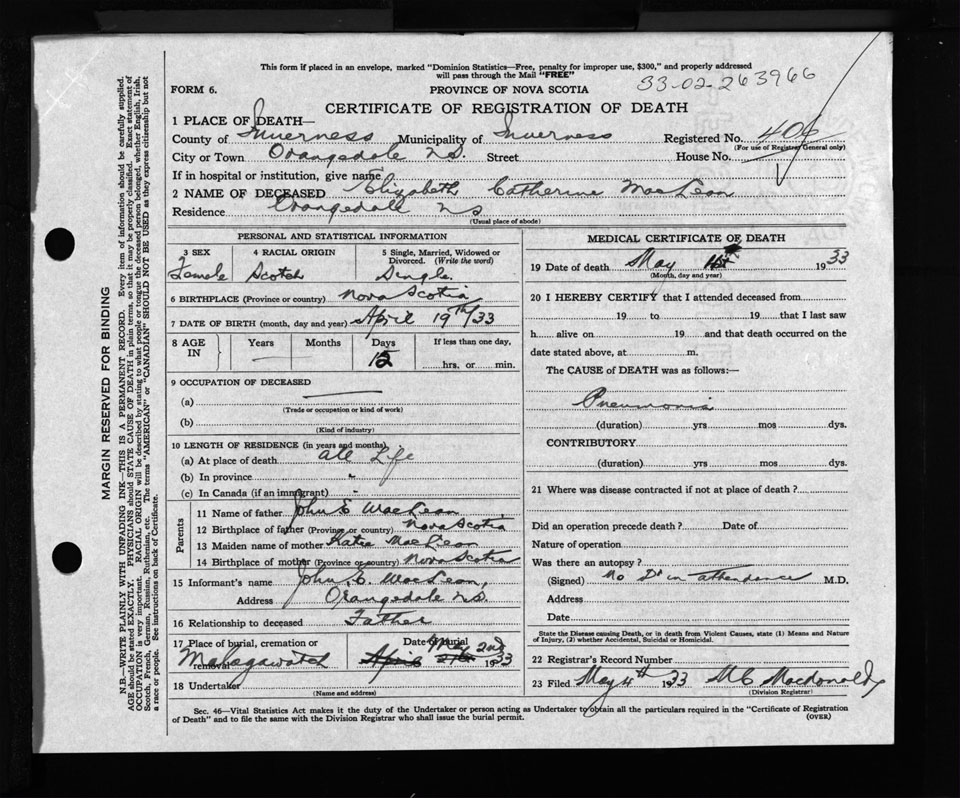 This form if placed in an envelope, marked "Dominion Statistics—Free, penalty for improper use, $300," and properly addressed
will pass through the Mail "FREE"
33-02-263966
FORM 6.
PROVINCE OF NOVA SCOTIA
CERTIFICATE OF REGISTRATION OF DEATH
1 PLACE OF DEATH—
County of Inverness Municipality of Inverness Registered No. 406
(For use of Registrar General only)
City or Town Orangedale N.S. Street House No.
If in hospital or institution, give name
2 NAME OF DECEASED Elizabeth Catherine MacLean
Residence Orangedale N.S
(Usual place of abode)
PERSONAL AND STATISTICAL INFORMATION
3 SEX 4 RACIAL ORIGIN 5 Single, Married, Widowed or Divorced. (Write the word)
Female Scotch Single.
6 BIRTHPLACE (Province or country) Nova Scotia
7 DATE OF BIRTH (month, day and year) April 19th/33
8 AGE IN Years Months Days If less than one day,
12 hrs. or min.
9 OCCUPATION OF DECEASED
(a)
(Trade or occupation or kind of work)
(b)
(Kind of industry)
10 LENGTH OF RESIDENCE (in years and months)
(a) At place of death All Life
(b) In province "
(c) In Canada (if an immigrant) -
Parents
11 Name of father John E MacLean
12 Birthplace of father (Province or country) Nova Scotia
13 Maiden name of mother Katie MacLean
14 Birthplace of mother (Province or country) Nova Scotia
15 Informant's name John E. MacLean,
Address Orangedale N.S.
16 Relationship to deceased Father
17 Place of burial, cremation or removal Malagawatch
Date of Burial May 2nd 1933
18 Undertaker
(Name and address)
MEDICAL CERTIFICATE OF DEATH
19 Date of death May 1st 1933
(Month, day and year)
20 I HEREBY CERTIFY that I attended deceased from
19 to 19 that I last saw
h alive on 19 and that death occurred on the
date stated above, at m.
The CAUSE of DEATH was as follows:—
Pneumonia
(duration) yrs mos dys.
CONTRIBUTORY
(duration) yrs mos dys.
21 Where was disease contracted if not at place of death?
Did an operation precede death? Date of
Nature of operation
Was there an autopsy?
(Signed) No Dr in attendance M.D.
Address
Date
State the Disease causing Death, or in death from Violent Causes, state (1) Means and Nature
of Injury, (2) whether Accidental, Suicidal or Homicidal.
22 Registrar's Record Number
23 Filed May 4th 1933 M C Macdonald
(Division Registrar)
Sec. 46—Vital Statistics Act makes it the duty of the Undertaker or person acting as Undertaker to obtain all the particulars required in the "Certificate of Registration
of Death" and to file the same with the Division Registrar who shall issue the burial permit.
(OVER)
MARGIN RESERVED FOR BINDING
N.B.—WRITE PLAINLY WITH UNFADING INK—THIS IS A PERMANENT RECORD. Every item of information should be carefully supplied.
AGE should be stated EXACTLY. PHYSICIANS should STATE CAUSE OF DEATH in plain terms, so that it may be properly classified. Exact statement of
OCCUPATION is very important. RACIAL ORIGIN will be described by stating to what people or tongue the deceased person belonged, whether English, Irish,
Scotch, French, German, Russian, Ruthenian, etc. The terms "AMERICAN" or "CANADIAN" SHOULD NOT BE USED as they express citizenship but not
a race or people. See instructions on back of Certificate.